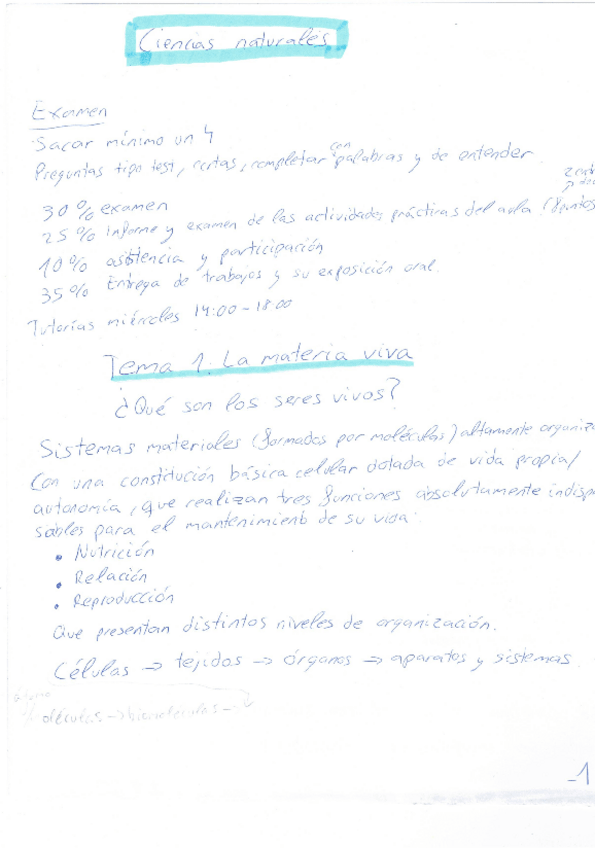 Ciencias naturales
Examen
Sacar mínimo un 4
Preguntas tipo test, cortas, completar con palabras y de entender
30% examen
25% Informe y examen de las actividades prácticas del aula
10% asistencia y participación
35% Entrega de trabajos y su exposición oral.
Tutorías miércoles 14:00-18:00
Tema 1. La materia viva
¿Qué son los seres vivos?
Sistemas materiales (formados por moléculas) altamente organiza
Con una constitución básica celular dotada de vida propia/
autonomía, que realizan tres funciones absolutamente indisp
sables para el mantenimiento de su vida:
• Nutrición
• Relación
• Reproducción
Que presentan distintos niveles de organización.
Células → tejidos → órganos → aparatos y sistemas
moléculas → biomoléculas →
-1